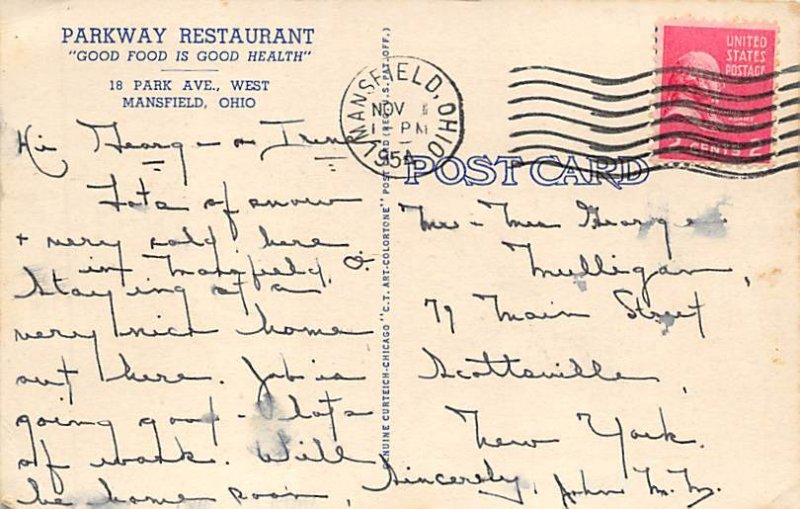 PARKWAY RESTAURANT
"GOOD FOOD IS GOOD HEALTH"
18 PARK AVE., WEST
MANSFIELD, OHIO
Hi George + Irene
Lots of snow
+ very cold here
in Mansfield, O.
Staying at a
very nice home
out here. Job is
going good - lots
of work. Will
be home soon,
Sincerely, John M. M.
GENUINE CURTEICH-CHICAGO "C.T. ART-COLORTONE" POST CARD (REG. U.S. PAT. OFF.)
MANSFIELD, OHIO
NOV 1
PM
195
UNITED
STATES
POSTAGE
2 CENTS 2
POST CARD
Mr - Mrs George
Mulligan,
79 Main Street
Scottsville,
New York.